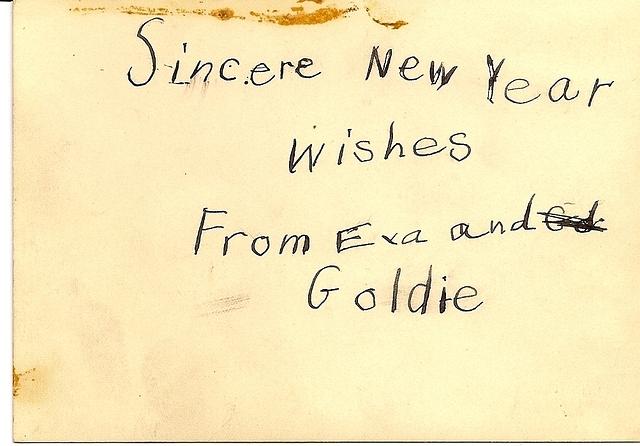 Sincere New Year
Wishes
From Eva and
Goldie